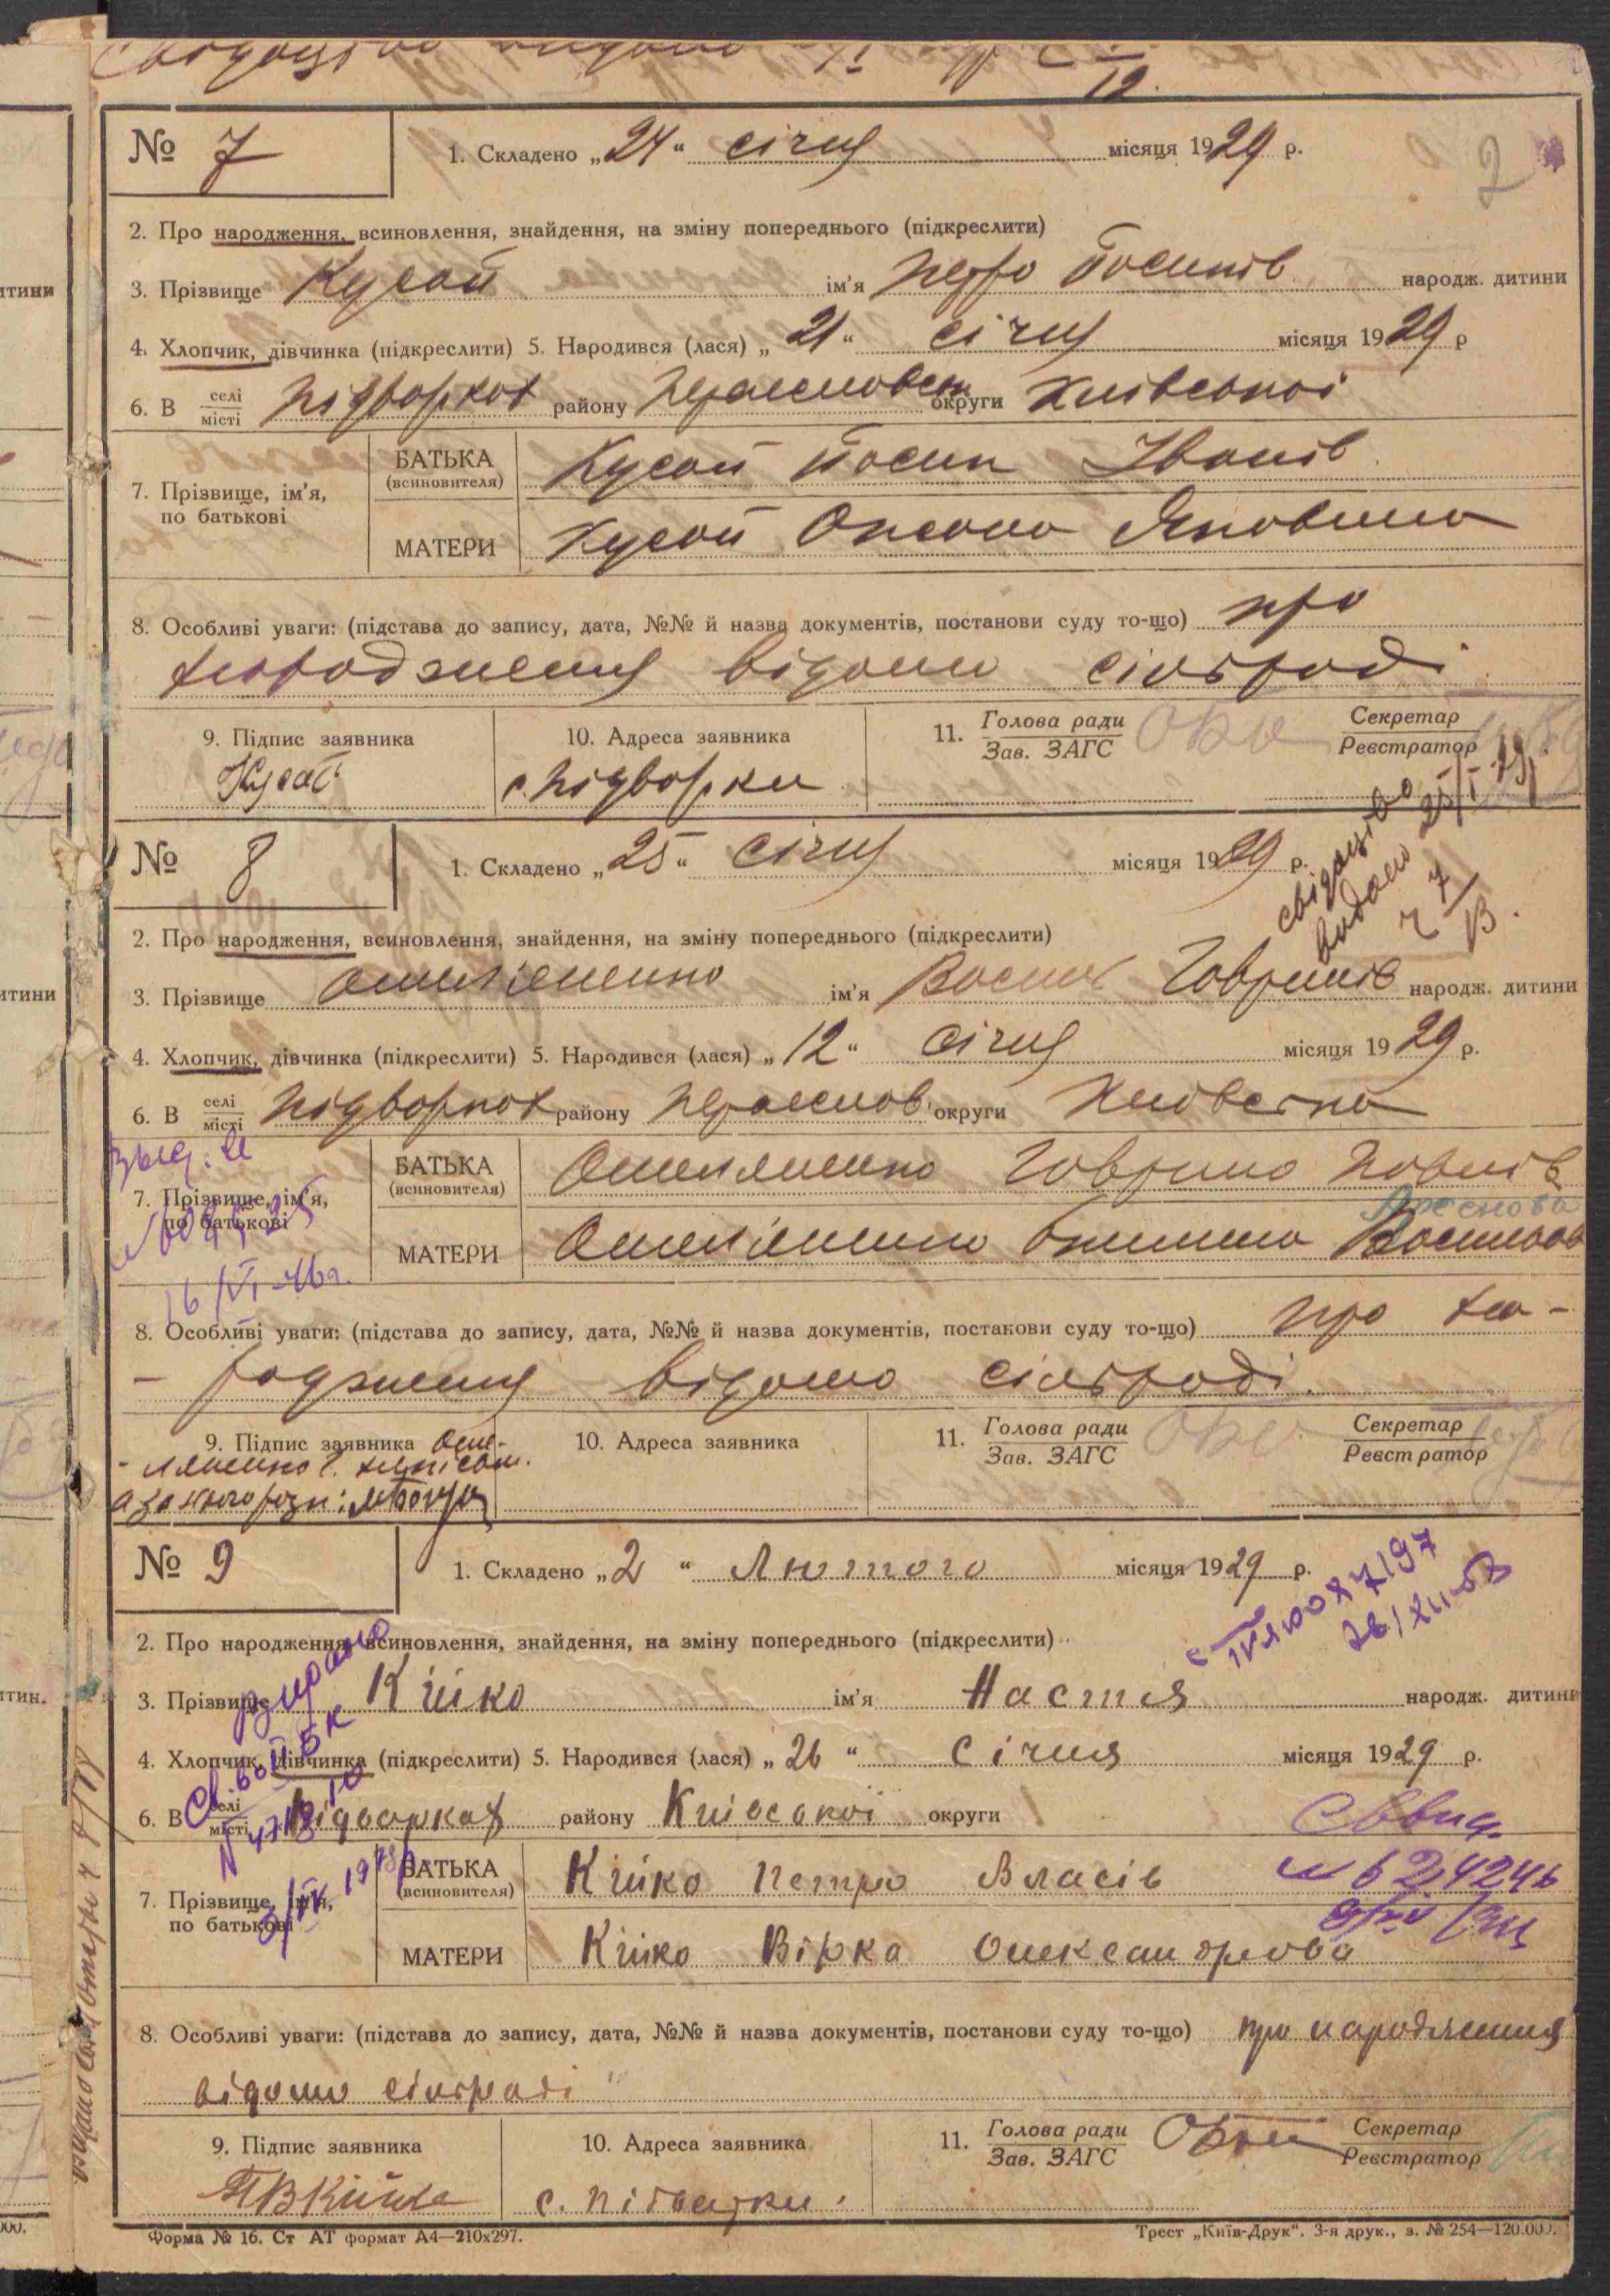 12.
№ 7
1. Складено „24“ січня місяця 1929 р.
2
2. Про народження, всиновлення, знайдення, на зміну попереднього (підкреслити)
3. Прізвище Кусай ім'я Петро Йосипів народж. дитини
4. Хлопчик, дівчинка (підкреслити) 5. Народився (лася) „21“ січня місяця 1929 р
6. В селі місті Підворках району Переяславськ округи Київської
7. Прізвище, ім'я, по батькові
БАТЬКА (всиновителя) Кусай Йосип Іванів
МАТЕРИ Кусай Оксана Яковина
8. Особливі уваги: (підстава до запису, дата, №№ й назва документів, постанови суду то-що) про
народження відомо сільраді
9. Підпис заявника Кусай
10. Адреса заявника с. Підворки
11. Голова ради Зав. ЗАГС
Секретар Реєстратор
свідоцтво
видано 25/I 29
ч 7/В.
№ 8
1. Складено „25“ січня місяця 1929 р.
2. Про народження, всиновлення, знайдення, на зміну попереднього (підкреслити)
3. Прізвище Омеляненко ім'я Василь Гаврилів народж. дитини
4. Хлопчик, дівчинка (підкреслити) 5. Народився (лася) „12“ січня місяця 1929 р.
6. В селі місті Підворках району Переяслав. округи Київська
7. Прізвище, ім'я, по батькові
БАТЬКА (всиновителя) Омеляненко Гаврило Павлів
МАТЕРИ Омеляненко Василева
16/VI-46г.
8. Особливі уваги: (підстава до запису, дата, №№ й назва документів, постанови суду то-що) про на-
- родження відомо сільраді.
9. Підпис заявника Оме-
- ляненко Г. неписьм.
а за нього розп:
10. Адреса заявника
11. Голова ради Зав. ЗАГС
Секретар Реєстратор
№ 9
1. Складено „2“ Лютого місяця 1929 р.
2. Про народження, всиновлення, знайдення, на зміну попереднього (підкреслити)
3. Прізвище Кійко ім'я Настя народж. дитини
4. Хлопчик, дівчинка (підкреслити) 5. Народився (лася) „26“ Січня місяця 1929 р.
6. В селі місті Підворках району Київської округи
7. Прізвище, ім'я, по батькові
БАТЬКА (всиновителя) Кійко Петро Власів
МАТЕРИ Кійко Вірка Олександрова
8. Особливі уваги: (підстава до запису, дата, №№ й назва документів, постанови суду то-що) про народження
відомо сільраді
9. Підпис заявника П В Кійко
10. Адреса заявника с. Підварки.
11. Голова ради Зав. ЗАГС
Секретар Реєстратор
Форма № 16. Ст АТ формат А4—210х297.
Трест „Київ-Друк“. 3-я друк., з. № 254—120.000.